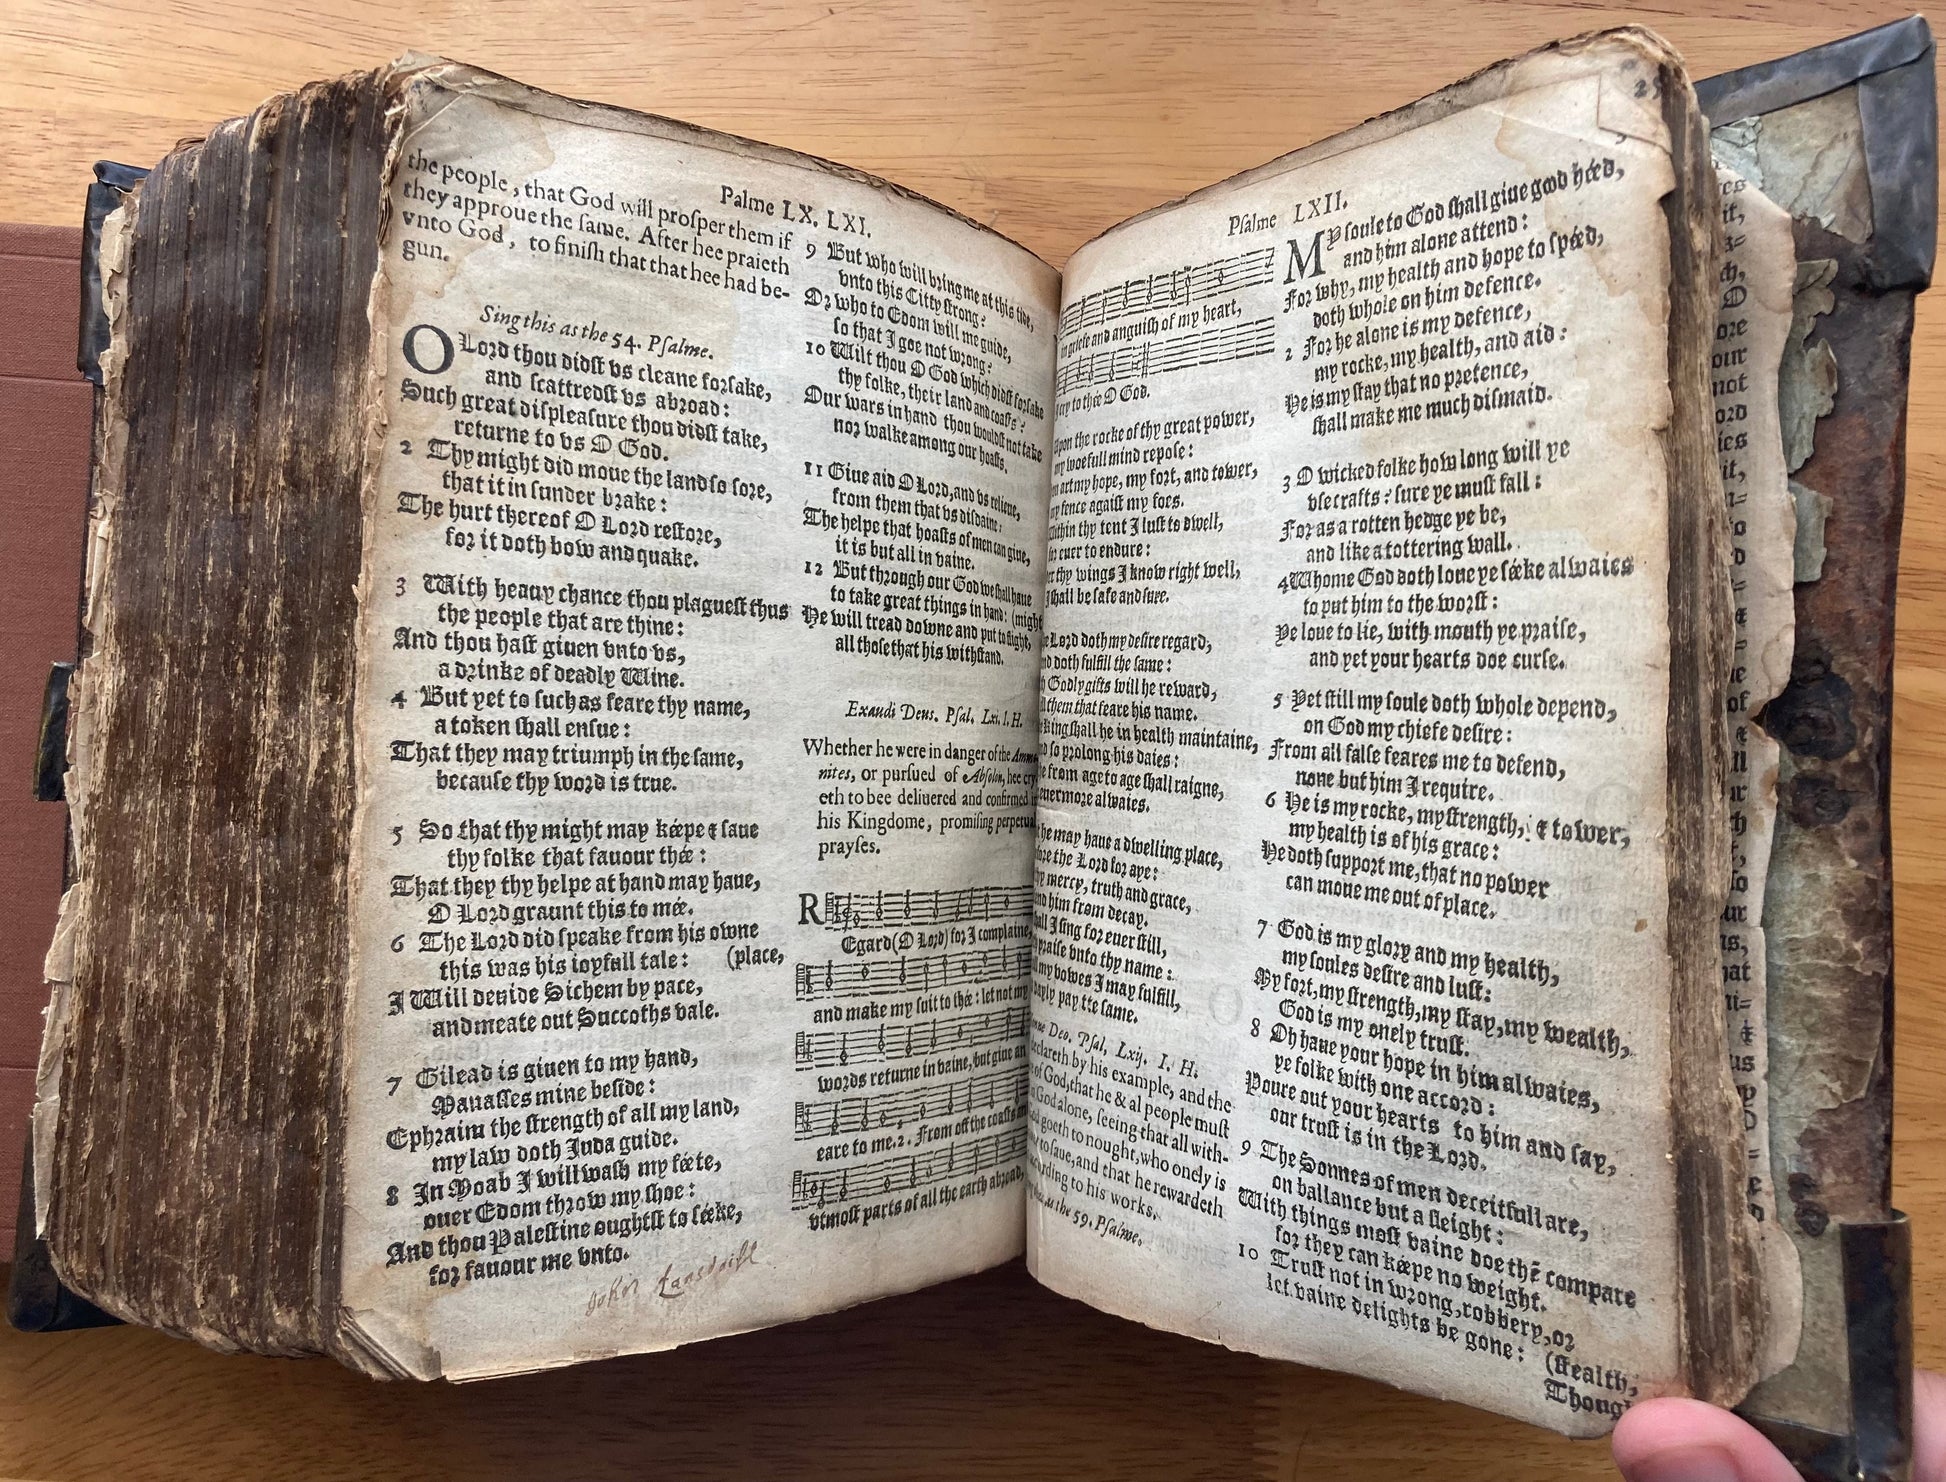 Palme LX. LXI.
the people, that God will prosper them if
they approue the same. After hee praieth
vnto God, to finish that that hee had be-
gun.
Sing this as the 54. Psalme.
O Lord thou didst vs cleane forsake,
and scattredst vs abroad:
Such great displeasure thou didst take,
returne to vs O God.
2 Thy might did moue the land so sore,
that it in sunder brake:
The hurt thereof O Lord restore,
for it doth bow and quake.
3 With heauy chance thou plaguest thus
the people that are thine:
And thou hast giuen vnto vs,
a drinke of deadly Wine.
4 But yet to such as feare thy name,
a token shall ensue:
That they may triumph in the same,
because thy word is true.
5 So that thy might may kéepe & saue
thy folke that fauour thée:
That they thy helpe at hand may haue,
O Lord graunt this to mée.
6 The Lord did speake from his owne
this was his ioyfull tale: (place,
I Will deuide Sichem by pace,
and meate out Succoths vale.
7 Gilead is giuen to my hand,
Manasses mine beside:
Ephraim the strength of all my land,
my law doth Iuda guide.
8 In Moab I will wash my féete,
ouer Edom throw my shoe:
And thou Palestine oughtst to séeke,
for fauour me vnto.
John
9 But who will bring me at this tide,
vnto this Citty strong?
Or who to Edom will me guide,
so that I goe not wrong?
10 Wilt thou O God which didst forsake
thy folke, their land and coasts?
Our wars in hand thou wouldst not take
nor walke among our hoasts.
11 Giue aid O Lord, and vs relieue,
from them that vs disdaine:
The helpe that hoasts of men can giue,
it is but all in vaine.
12 But through our God we shall haue
to take great things in hand: (might
He will tread downe and put to flight,
all those that his withstand.
Exaudi Deus. Psal. Lxi. I. H.
Whether he were in danger of the
nites, or pursued of Absolon, hee
eth to bee deliuered and confirmed
his Kingdome, promising perpetual
prayses.
REgard (O Lord) for I complaine,
and make my suit to thée: let not my
words returne in vaine, but giue an
eare to me. 2. From off the coasts and
vtmost parts of all the earth abroad,
Psalme LXII.
in griefe and anguish of my heart,
cry to thée O God.
vpon the rocke of thy great power,
my woefull mind repose:
art my hope, my fort, and tower,
my fence against my foes.
within thy tent I lust to dwell,
for euer to endure:
thy wings I know right well,
I shall be safe and sure.
Lord doth my desire regard,
and doth fulfill the same:
Godly gifts will he reward,
them that feare his name.
King shall he in health maintaine,
and so prolong his daies:
from age to age shall raigne,
euermore alwaies.
he may haue a dwelling place,
before the Lord for aye:
mercy, truth and grace,
him from decay.
shall I sing for euer still,
praise vnto thy name:
my vowes I may fulfill,
pay tte same.
Deo. Psal, Lxij. I. H.
declareth by his example, and the
of God, that he & al people must
God alone, seeing that all with-
goeth to nought, who onely is
to saue, and that he rewardeth
according to his works.
as the 59. Psalme.
MY soule to God shall giue good héed,
and him alone attend:
For why, my health and hope to spéed,
doth whole on him defence.
2 For he alone is my defence,
my rocke, my health, and aid:
He is my stay that no pretence,
shall make me much dismaid.
3 O wicked folke how long will ye
vse crafts? sure ye must fall:
For as a rotten hedge ye be,
and like a tottering wall.
4 Whome God doth loue ye séeke alwaies
to put him to the worst:
Ye loue to lie, with mouth ye praise,
and yet your hearts doe curse.
5 Yet still my soule doth whole depend,
on God my chiefe desire:
From all false feares me to defend,
none but him I require.
6 He is my rocke, my strength, & tower,
my health is of his grace:
He doth support me, that no power
can moue me out of place.
7 God is my glory and my health,
my soules desire and lust:
My fort, my strength, my stay, my wealth,
God is my onely trust.
8 Oh haue your hope in him alwaies,
ye folke with one accord:
Poure out your hearts to him and say,
our trust is in the Lord.
9 The Sonnes of men deceitfull are,
on ballance but a sleight:
With things most vaine doe thē compare
for they can kéepe no weight.
10 Trust not in wrong, robbery, or
let vaine delights be gone: (stealth,
Though